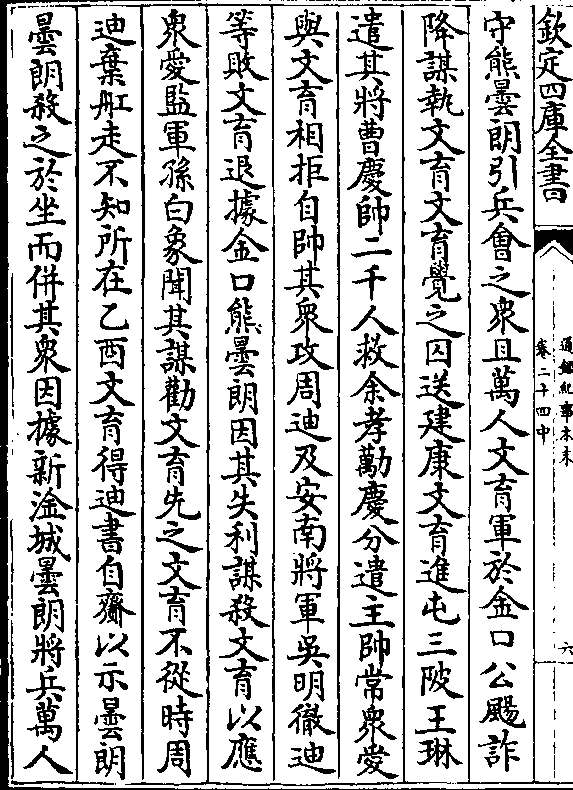 欽定四庫全書
通鑑紀事本末
卷二十四中
六
守熊曇朗引兵會之衆且萬人文育軍於金口公颺詐
降謀執文育文育覺之囚送建康文育進屯三陂王琳
遣其將曹慶帥二千人救余孝勱慶分遣主帥常衆愛
與文育相拒自帥其衆攻周迪及安南將軍吳明徹迪
等敗文育退據金口熊曇朗因其失利謀殺文育以應
衆愛監軍孫白象聞其謀勸文育先之文育不從時周
迪棄舡走不知所在乙酉文育得迪書自齎以示曇朗
曇朗殺之於坐而併其衆因據新淦城曇朗將兵萬人